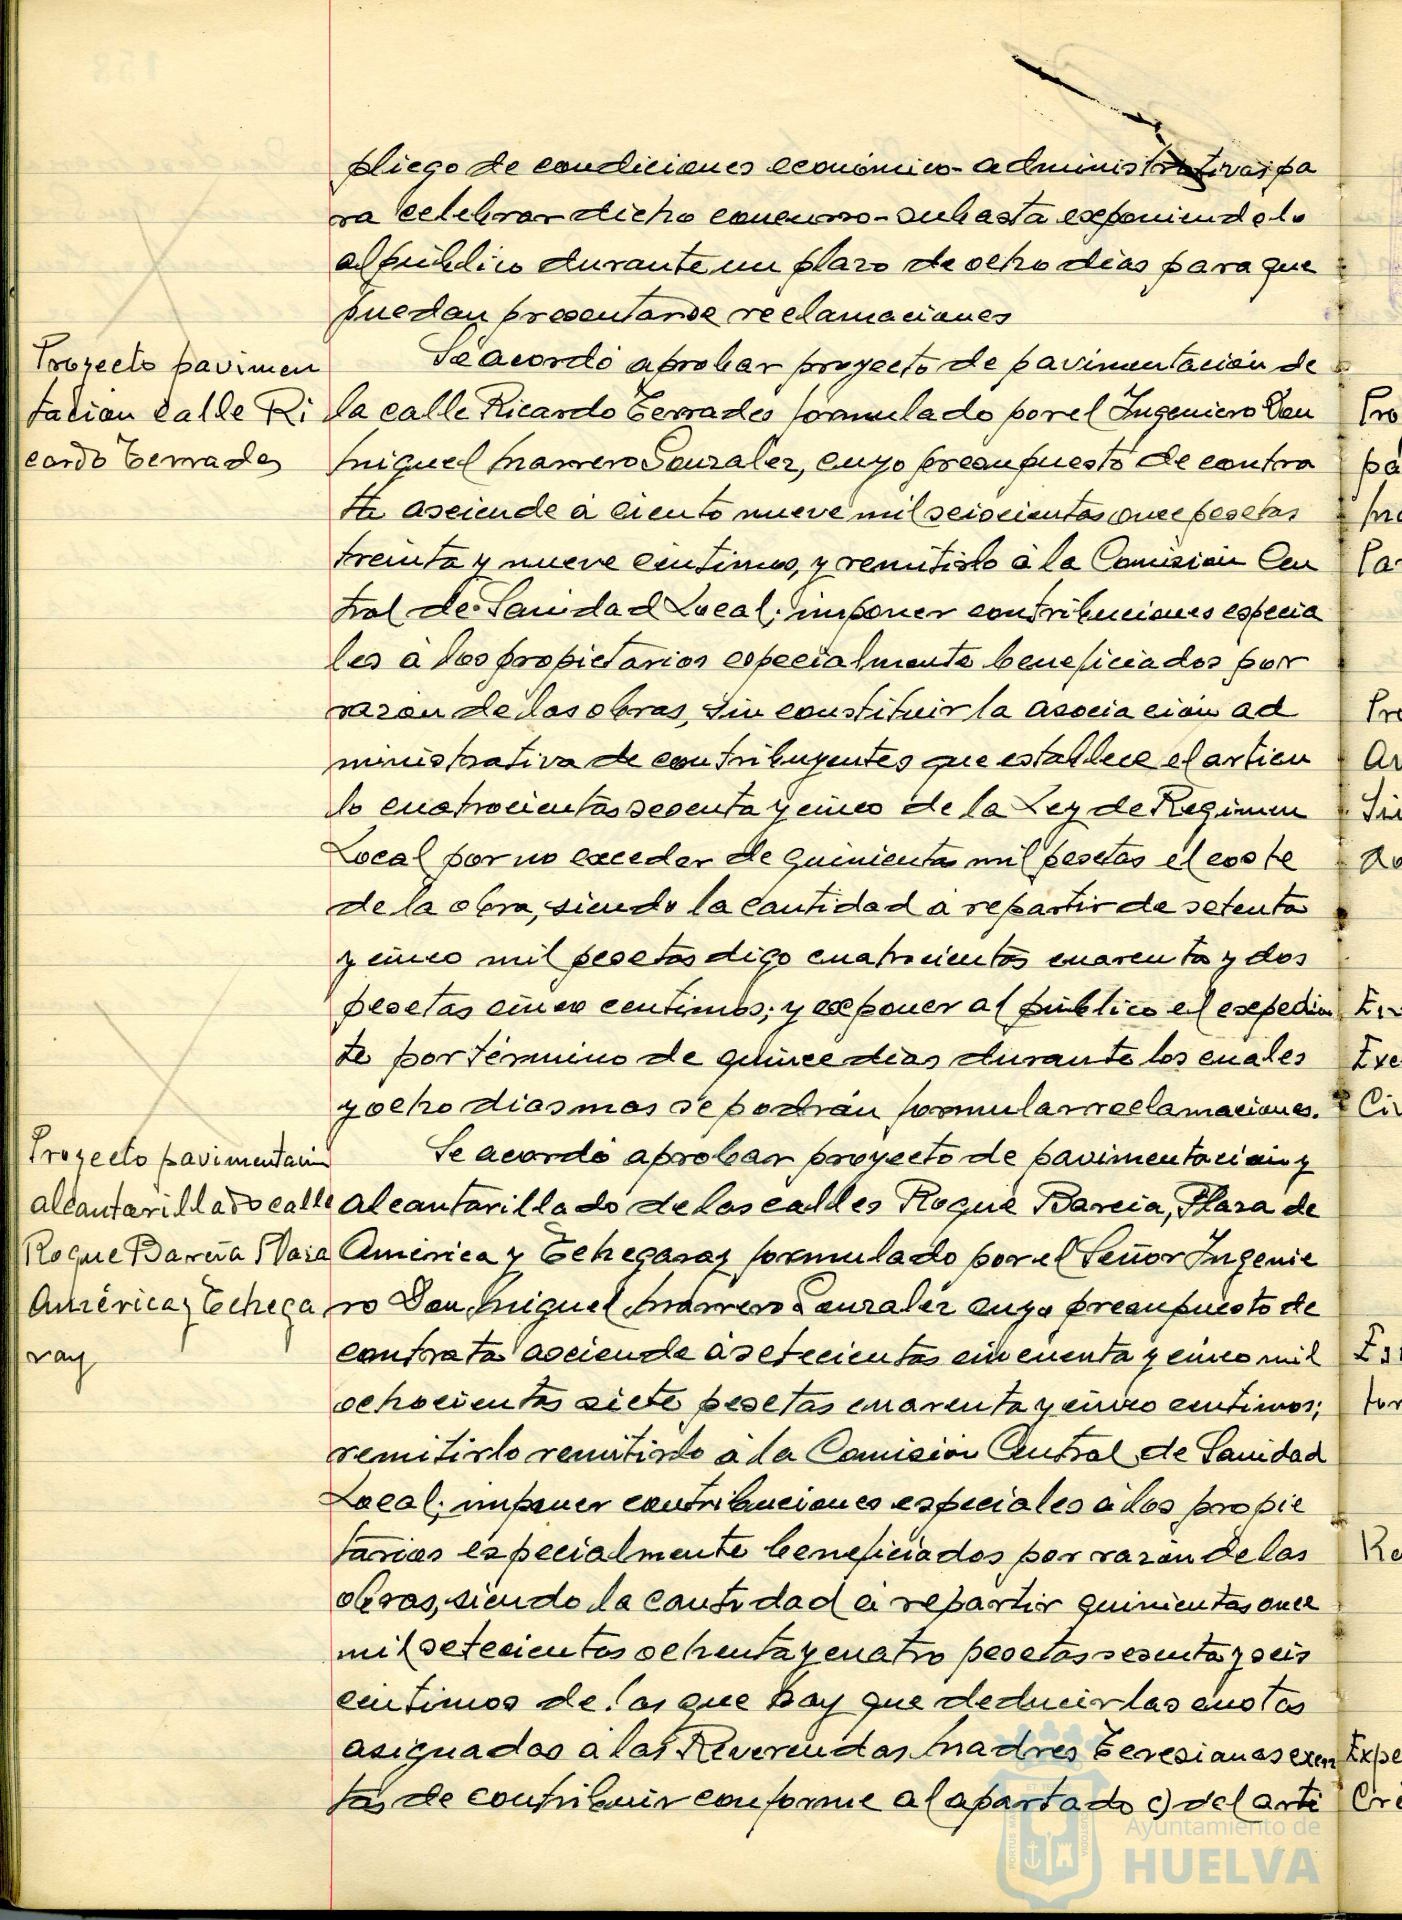 pliego de condiciones económico-administrativas pa
ra celebrar dicho concurso-subasta exponiendolo
al público durante un plazo de ocho dias para que
puedan presentarse reclamaciones
Proyecto pavimen
tacion calle Ri
cardo Terrades
Se acordó aprobar proyecto de pavimentación de
la calle Ricardo Terrades formulado por el Ingeniero Don
Miguel Marrero Gonzalez, cuyo presupuesto de contra
ta asciende á ciento nueve mil seiscientas once pesetas
treinta y nueve centimos, y remitirlo á la Comisión Cen
tral de Sanidad Local; imponer contribuciones especia
les á los propietarios especialmente beneficiados por
razón de las obras, sin constituir la asociación ad
ministrativa de contribuyentes que establece el articu
lo cuatrocientos sesenta y cinco de la Ley de Regimen
Local por no exceder de quinientas mil pesetas el coste
de la obra, siendo la cantidad á repartir de setenta
y cinco mil pesetas digo cuatrocientas cuarenta y dos
pesetas cinco centimos; y exponer al público el expedien
te por término de quince dias durante los cuales
y ocho dias mas se podrán formular reclamaciones.
Proyecto pavimentación
alcantarillado calle
Roque Barcia Plaza
América y Echega
ray
Se acordó aprobar proyecto de pavimentación y
alcantarillado de las calles Roque Barcia, Plaza de
América y Echegaray formulado por el Señor Ingenie
ro Don Miguel Marrero Gonzalez cuyo presupuesto de
contrata asciende á setecientas cincuenta y cinco mil
ochocientas siete pesetas cuarenta y cinco centimos;
remitirlo remitirlo á la Comisión Central de Sanidad
Local; imponer contribuciones especiales á los propie
tarios especialmente beneficiados por razón de las
obras, siendo la cantidad á repartir quinientas once
mil setecientas ochenta y cuatro pesetas sesenta y seis
centimos de las que hay que deducir las cuotas
asignadas á las Reverendas Madres Teresianas exen
tas de contribuir conforme al apartado c) del arti
Pro
pa
Pa
Pro
Exe
Expe
Cre
Ayuntamiento de
HUELVA